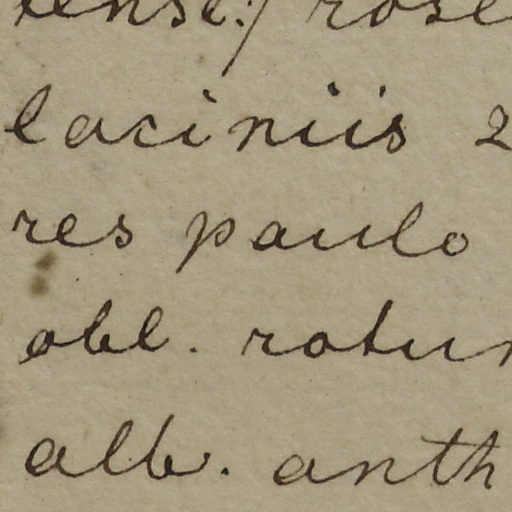 laciniis 2
res paulo
obl. rotun
alb. anth